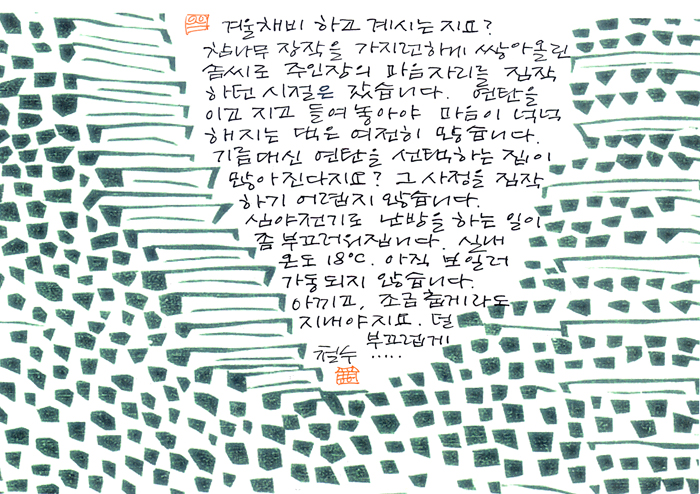 겨울채비 하고 계시는 지요?
참나무 장작을 가지런하게 쌓아올린
솜씨로 주인장의 마음자리를 짐작
하던 시절은 갔습니다. 연탄을
이고 지고 들여놓아야 마음이 넉넉
해지는 댁은 여전히 많습니다.
기름대신 연탄을 선택하는 집이
많아진다지요? 그 사정을 짐작
하기 어렵지 않습니다.
심야전기로 난방을 하는 일이
좀 부끄러워집니다. 실내
온도 18℃. 아직 보일러
가동되지 않습니다.
아끼고, 조금 춥게라도
지내야지요. 덜
부끄럽게
철수 .....